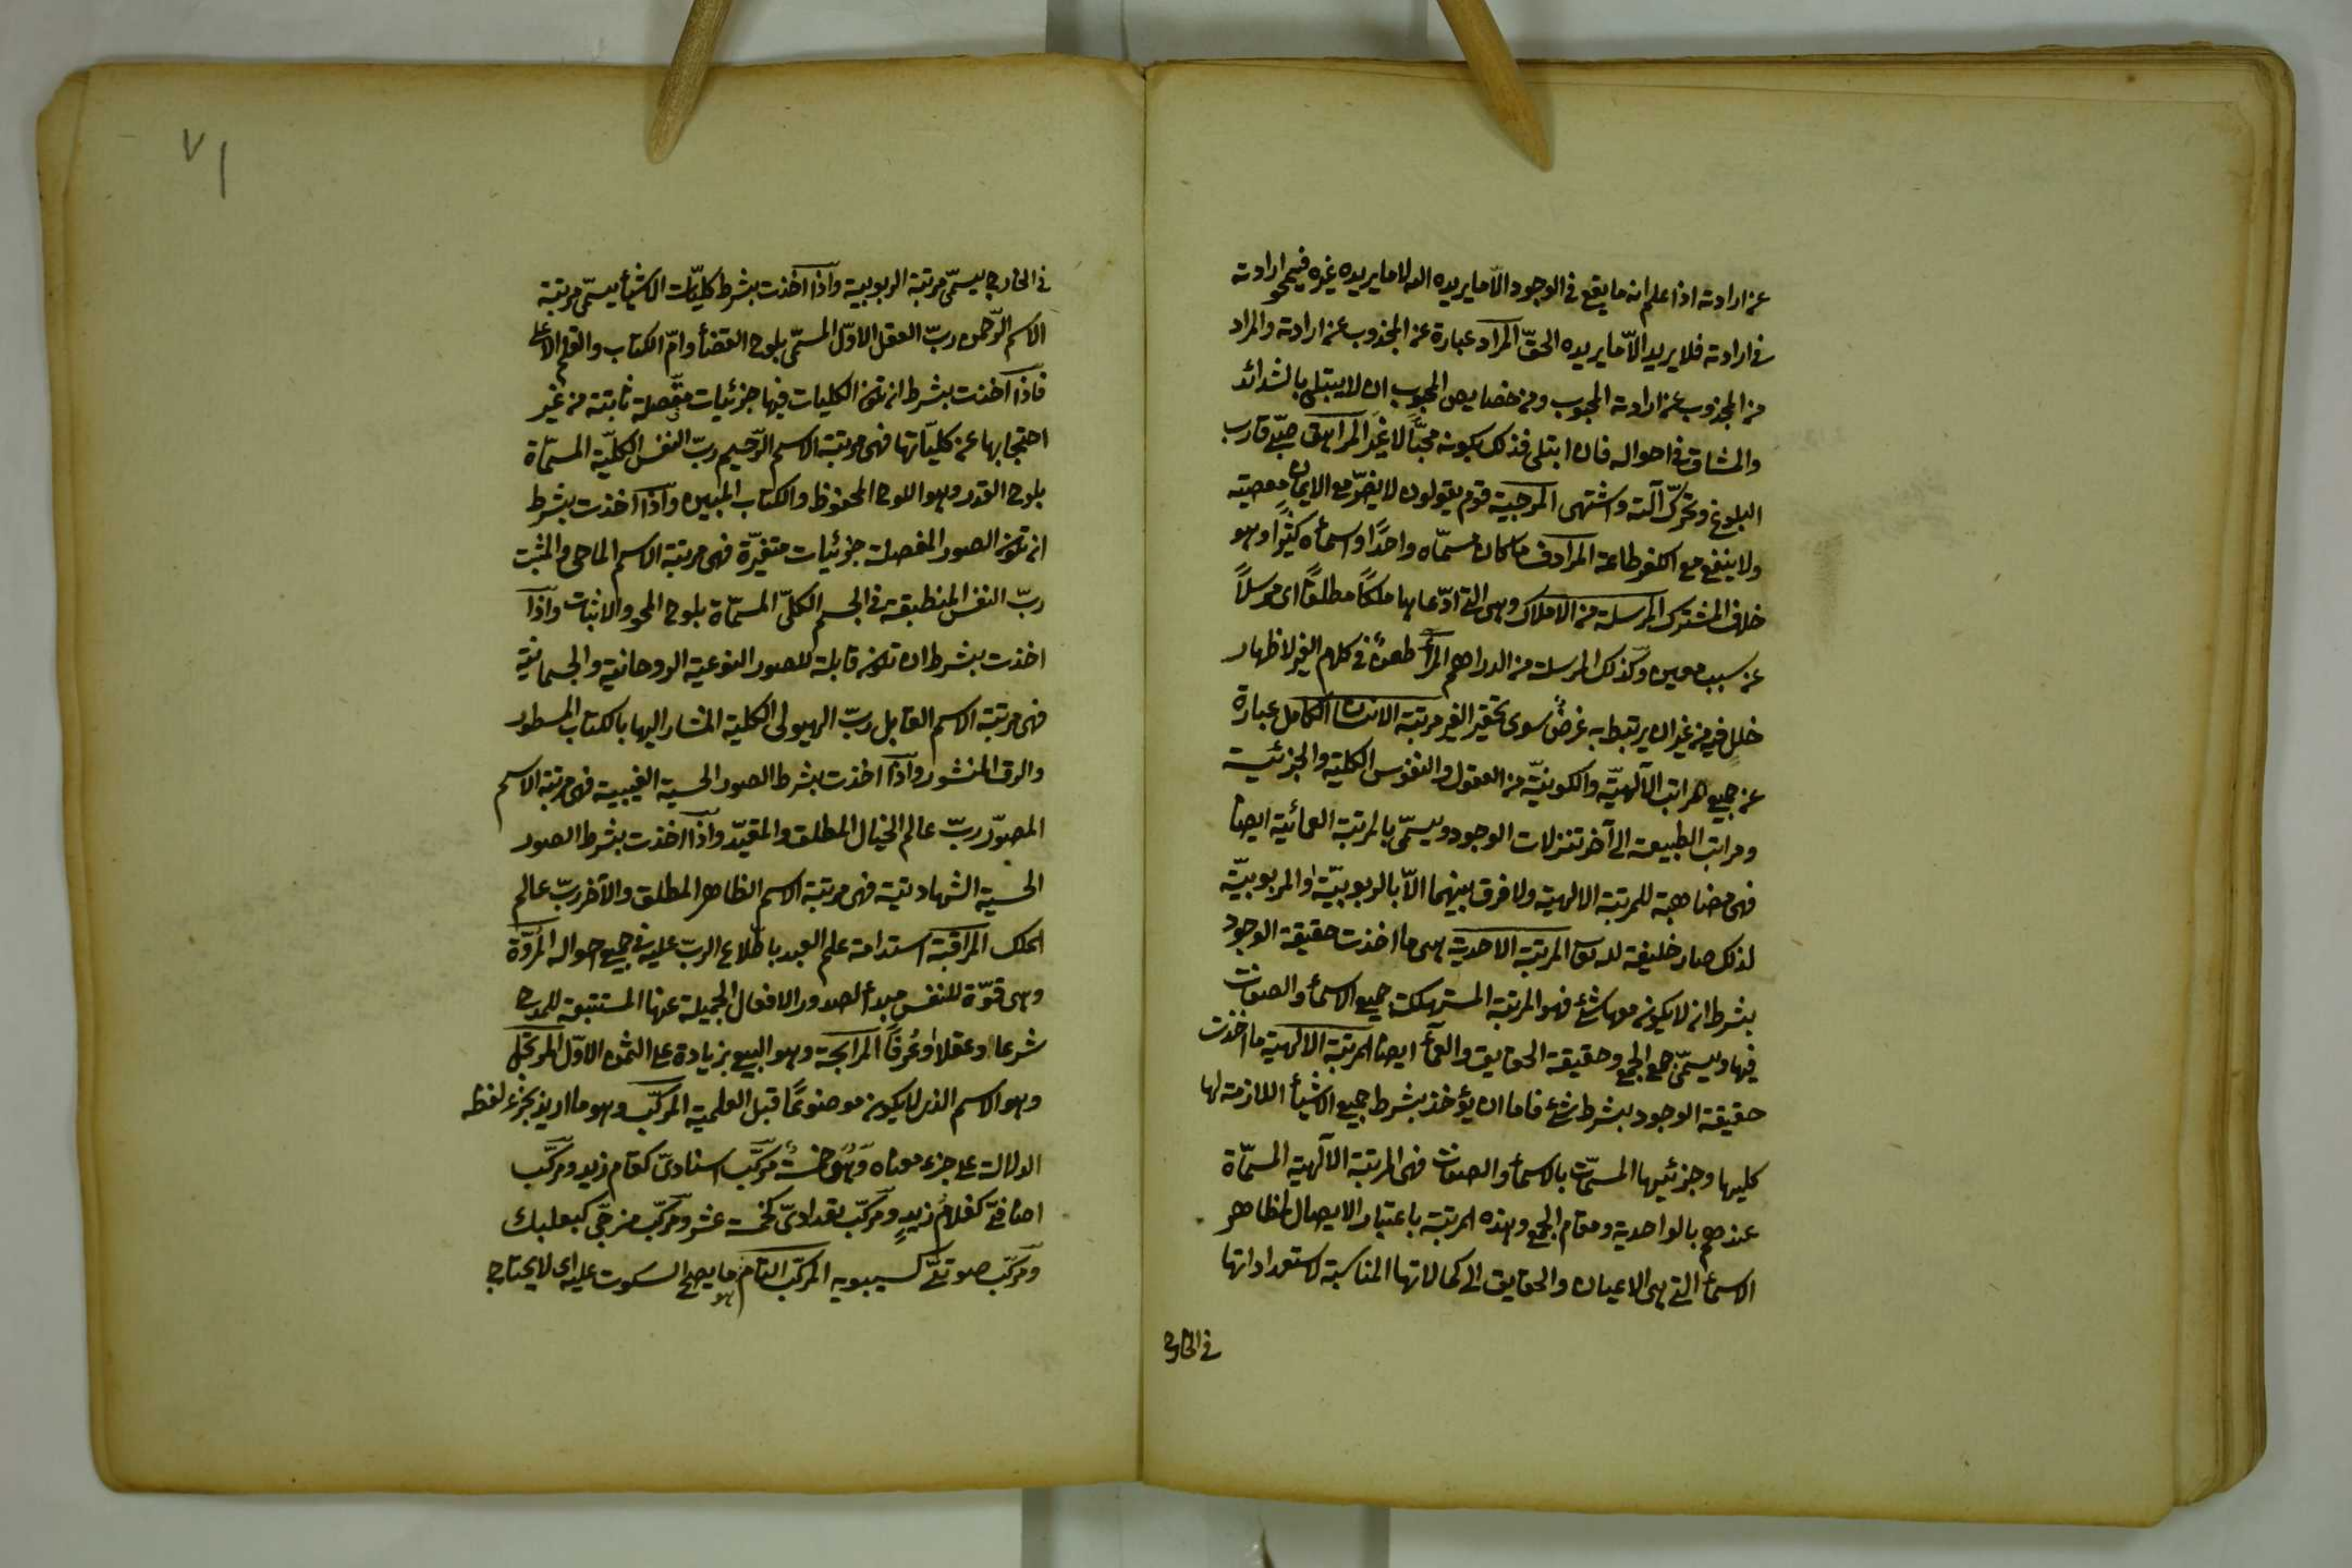 عن ارادته اذا علم انه ما يقع في الوجود الّا ما يريده الله لا ما يريده غيره فيمحو ارادته
في ارادته فلا يريد الاّ ما يريده الحقّ المراد عبارة عن المجذوب عن ارادته والمراد
من المجذوب عن ارادته المحبوب ومن خصايص المحبوب ان لا يبتلى بالشدائد
والمشاق في احواله فان ابتلى فذلك يكون محبًّا لا غير المراهق صبّي قارب
البلوغ وتحرّك آلته واشتهى المرجية قوم يقولون لا يضرّ مع الايمان معصيته
ولا ينفع مع الكفر طاعة المرادف ما كان مسمّاه واحدًا واسماؤه كثيرًا وهو
خلاف المشترك المرسلة من الاملاك وهى التي ادّعاها ملكًا مطلقًا اى مرسلًا
عن سبب معين وكذلك المرسلة من الدراهم المرأ طعنٌ في كلام الغير لاظهار
خلل فيه من غير ان يرتبط به غرضٌ سوى تحقير الغير مرتبة الانسان الكامل عبارة
عن جميع المراتب الآلهيّة والكونيّة من العقول والنفوس الكلية والجزئية
ومراتب الطبيعة الى آخر تنزلات الوجود ويسمّى بالمرتبة العمائية ايضا
فهى مضاهية للمرتبة الالهية ولا فرق بينهما الاّ بالربوبيّة والمربوبيّة
لذلك صار خليفة لله تعا المرتبة الاحدية هى ما اخذت حقيقة الوجود
بشرط ان لا يكون معها شئ فهو المرتبة المستهلكة جميع الاسماء والصفات
فيها ويسمّى جمع الجمع وحقيقة الحقايق والعمآ ايضا المرتبة الالهية ما اخذت
حقيقة الوجود بشرط شئ فاما ان يؤخذ بشرط جميع الاشيأ اللازمة لها
كليها وجزئيها المسمّات بالاسمأ والصفات فهى المرتبة الآلهية المسمّاة
عندهم بالواحدية ومقام الجمع وهذه المرتبة باعتبار الايصال لمظاهر
الاسمأ التي هى الاعيان والحقايق الى كمالاتها المناسبة لاستعداداتها
في الخارج
٧١
في الخارج يسمّى مرتبة الربوبية واذا اخذت بشرط كليّات الاشيأ يسمّى مرتبة
الاسم الرّحمن ربّ العقل الاوّل المسمّى بلوح القضأ وامّ الكتاب والقلم الاعلى
فاذا اخذت بشرط ان تكون الكليات فيها جزئيات مفصّلة ثابتة من غير
احتجابها عن كليّاتها فهى مرتبة الاسم الرّحيم ربّ النفس الكليّة المسمّاة
بلوح القدر وهو اللوح المحفوظ والكتاب المبين واذا اخذت بشرط
ان تكون الصور المفصلة جزئيات متغيّرة فهى مرتبة الاسم الماحى والمثبت
ربّ النفس المنطبقة في الجسم الكلّى المسمّاة بلوح المحو والاثبات واذا
اخذت بشرط ان تكون قابلة للصور النوعية الروحانية والجسمانية
فهى مرتبة الاسم القابل ربّ الهيولى الكلية المشار اليها بالكتاب المسطور
والرق المنشور واذا اخذت بشرط الصور الحسية الغيبية فهى مرتبة الاسم
المصوّر ربّ عالم الخيال المطلق والمقيّد واذا اخذت بشرط الصور
الحسية الشهادتية فهى مرتبة الاسم الظاهر المطلق والآخر ربّ عالم
الملك المراقبة استدامة علم العبد باطّلاع الربّ عليه في جميع احواله المروّة
وهى قوّة للنفس مبدأ لصدور الافعال الجميلة عنها المستتبعة للمدح
شرعا وعقلا وعُرفًا المرابحة وهو البيع بزيادة على الثمن الاوّل المرتجل
وهو الاسم الذى لا يكون موضوعًا قبل العلمية المركّب وهو ما اريد بجزء لفظه
الدلالة على جزء معناه وهى خمسة مركّب اسنادىّ كقام زيد ومركّب
اضافّي كغلامُ زيدٍ ومركّب تعدادىّ كخمسة عشر ومركّب مزجّى كبعلبك
ومركّب صوتىّ كسيبويه المركّب التام هو ما يصح السكوت عليه اى لا يحتاج